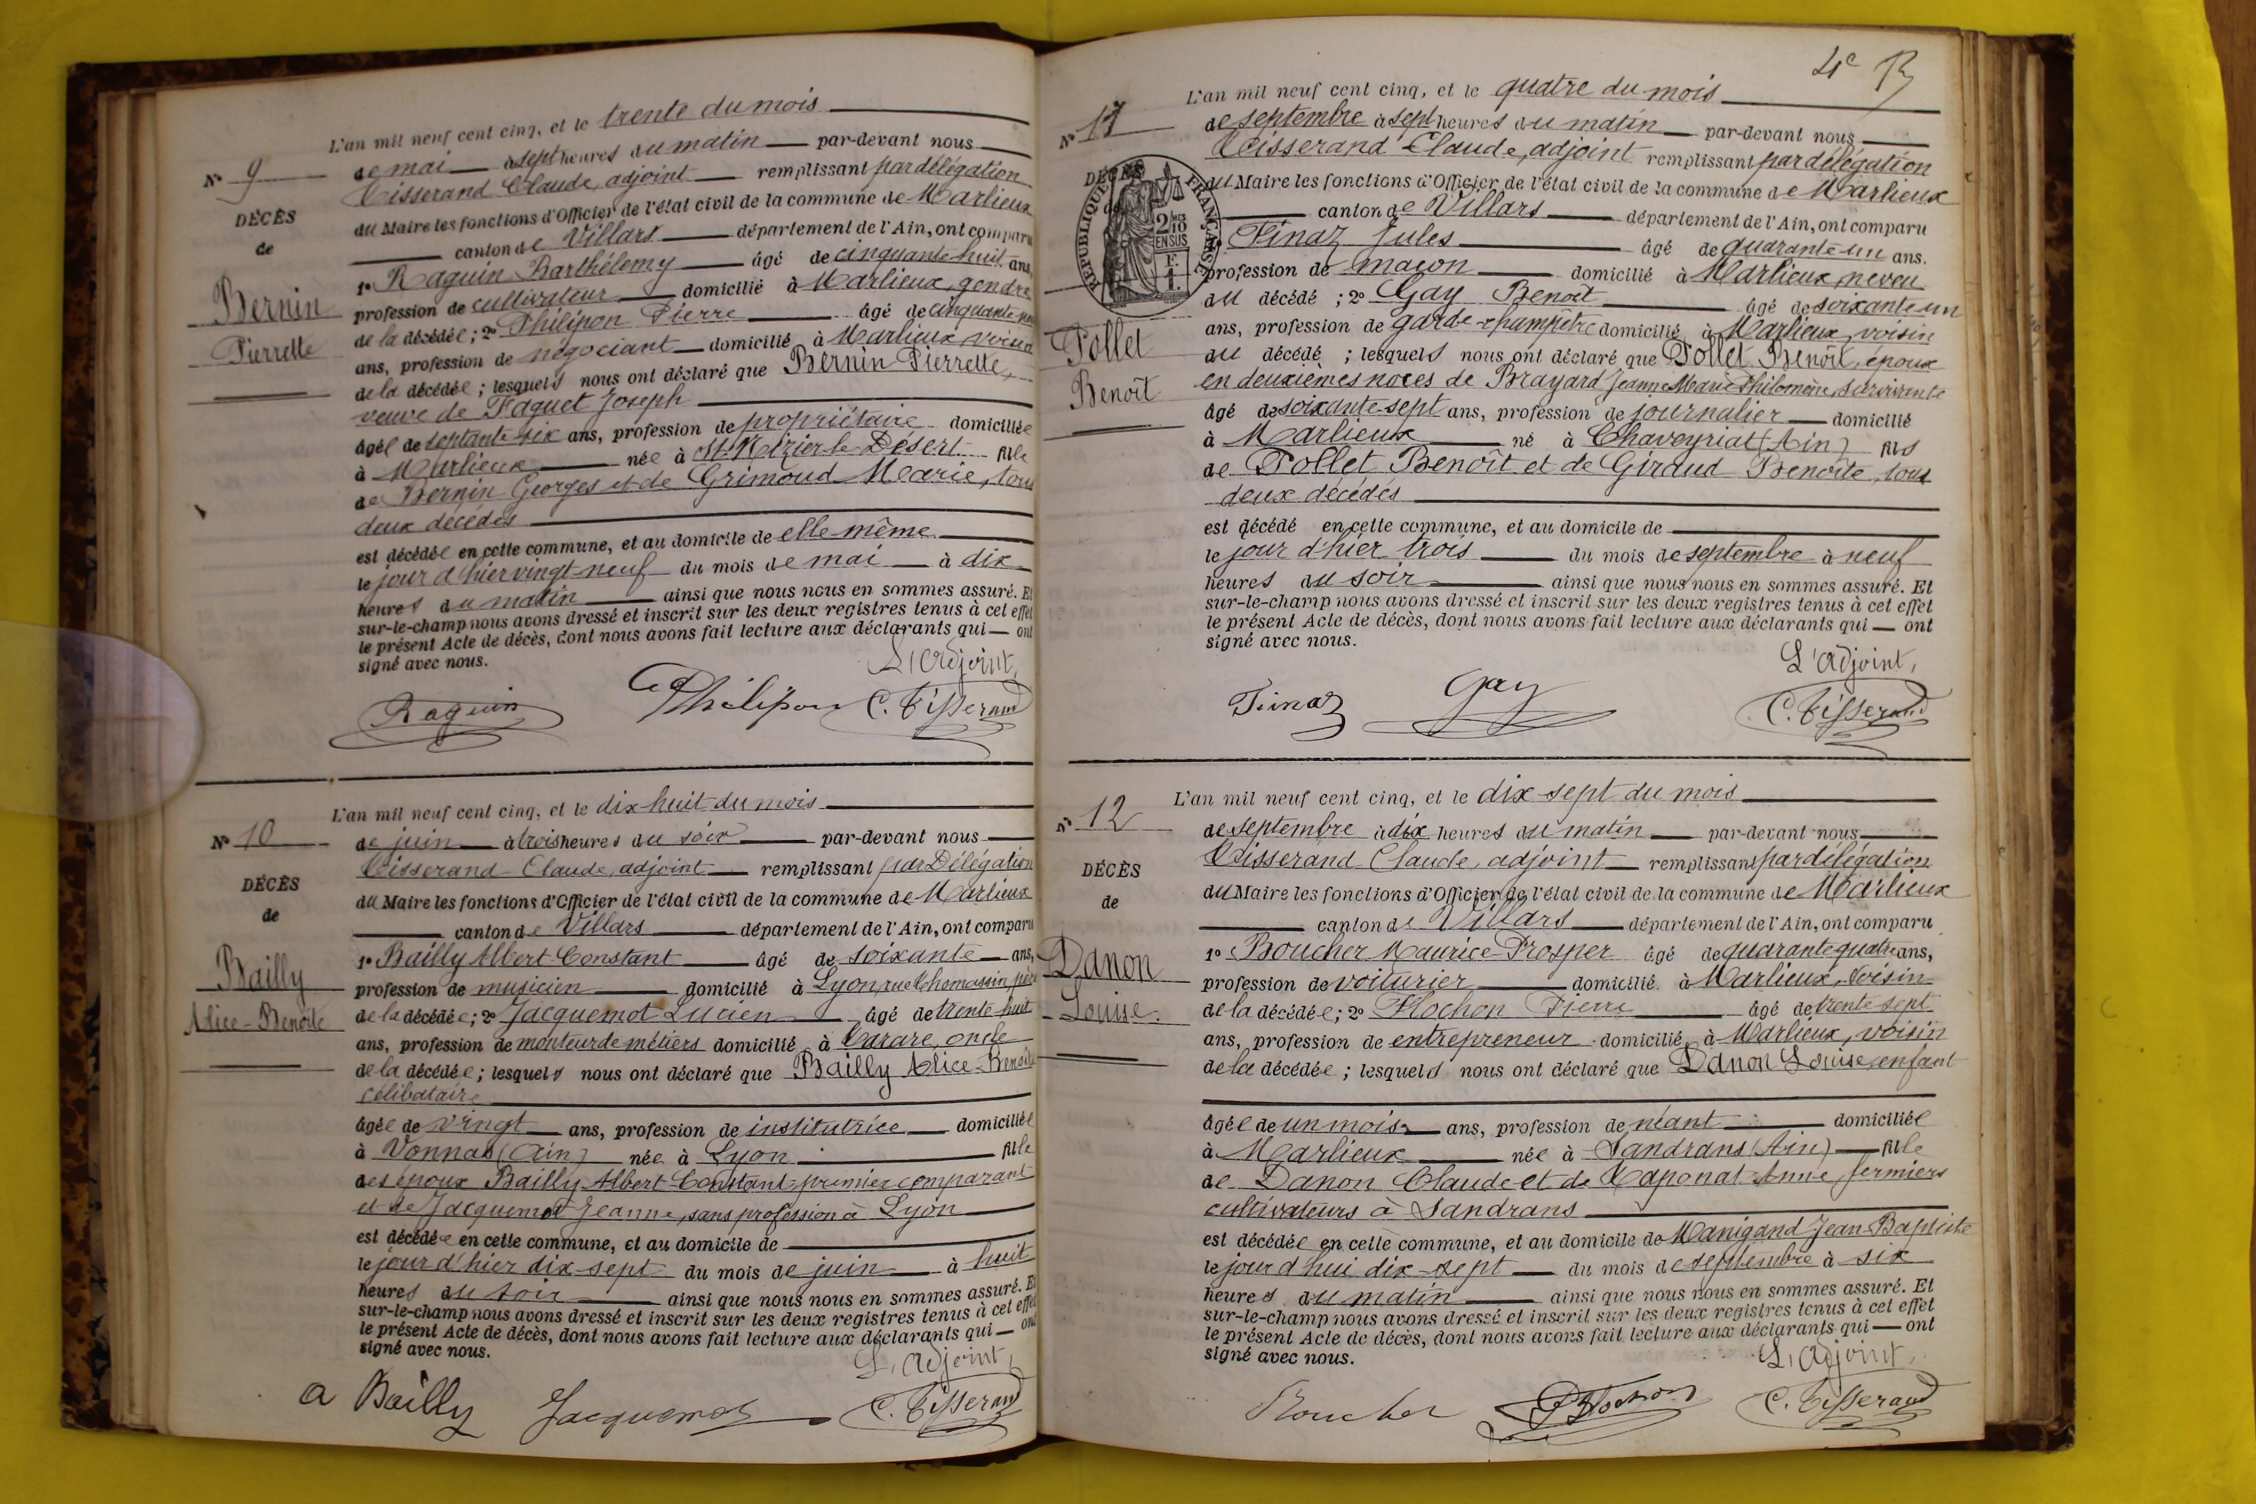 L'an mil neuf cent cinq, et le trente du mois
N° 9
de mai à sept heures du matin par-devant nous
Tisserand Claude, adjoint remplissant par délégation
DÉCÈS
du Maire les fonctions d'Officier de l'état civil de la commune de Marlieux
de
canton de Villars département de l'Ain, ont comparu
1° Raquin Barthélemy âgé de cinquante-huit ans,
Bernin
profession de cultivateur domicilié à Marlieux, gendre
Pierrette
de la décédée ; 2° Philipon Pierre âgé de cinquante
ans, profession de négociant domicilié à Marlieux, voisin
de la décédée ; lesquels nous ont déclaré que Bernin Pierrette,
veuve de Faguet Joseph
âgée de septante-six ans, profession de propriétaire domiciliée
à Marlieux née à St Nizier le Désert fille
de Bernin Georges et de Grimoud Marie, tous
deux décédés
est décédée en cette commune, et au domicile de elle-même
le jour d'hier vingt-neuf du mois de mai à dix
heures du matin ainsi que nous nous en sommes assuré. Et
sur-le-champ nous avons dressé et inscrit sur les deux registres tenus à cet effet
le présent Acte de décès, dont nous avons fait lecture aux déclarants qui ont
signé avec nous.
L'adjoint,
Raquin Philipon C. Tisserand
L'an mil neuf cent cinq, et le dix-huit du mois
N° 10
de juin à trois heures du soir par-devant nous
Tisserand Claude, adjoint remplissant par Délégation
DÉCÈS
du Maire les fonctions d'Officier de l'état civil de la commune de Marlieux
de
canton de Villars département de l'Ain, ont comparu
1° Bailly Albert Constant âgé de soixante ans,
Bailly
profession de musicien domicilié à Lyon, rue Thomassin, père
Alice-Benoîte
de la décédée ; 2° Jacquemot Lucien âgé de trente huit
ans, profession de monteur de métiers domicilié à Tarare, oncle
de la décédée ; lesquels nous ont déclaré que Bailly Alice-Benoîte
célibataire
âgée de vingt ans, profession de institutrice domiciliée
à Vonnas (Ain) née à Lyon fille
des époux Bailly Albert-Constant premier comparant
et de Jacquemot Jeanne, sans profession à Lyon
est décédée en cette commune, et au domicile de
le jour d'hier dix-sept du mois de juin à huit
heures du soir ainsi que nous nous en sommes assuré. Et
sur-le-champ nous avons dressé et inscrit sur les deux registres tenus à cet effet
le présent Acte de décès, dont nous avons fait lecture aux déclarants qui ont
signé avec nous.
L'adjoint,
a Bailly Jacquemot C. Tisserand
4e
L'an mil neuf cent cinq, et le quatre du mois
N° 11
de septembre à sept heures du matin par-devant nous
Tisserand Claude, adjoint remplissant par délégation
DÉCÈS
du Maire les fonctions d'Officier de l'état civil de la commune de Marlieux
RÉPUBLIQUE FRANÇAISE
2/10 EN SUS
F. 1.
canton de Villars département de l'Ain, ont comparu
1° Finaz Jules âgé de quarante-un ans.
profession de maçon domicilié à Marlieux, neveu
du décédé ; 2° Gay Benoît âgé de soixante-un
Pollet
ans, profession de garde-champêtre domicilié à Marlieux, voisin
du décédé ; lesquels nous ont déclaré que Pollet Benoît, époux
Benoît
en deuxièmes noces de Brayard Jeanne Marie Philomène, survivante
âgé de soixante-sept ans, profession de journalier domicilié
à Marlieux né à Chaveyriat (Ain) fils
de Pollet Benoît et de Giraud Benoîte, tous
deux décédés
est décédé en cette commune, et au domicile de
le jour d'hier trois du mois de septembre à neuf
heures du soir ainsi que nous nous en sommes assuré. Et
sur-le-champ nous avons dressé et inscrit sur les deux registres tenus à cet effet
le présent Acte de décès, dont nous avons fait lecture aux déclarants qui ont
signé avec nous.
L'adjoint,
Finaz Gay C. Tisserand
L'an mil neuf cent cinq, et le dix-sept du mois
N° 12
de septembre à dix heures du matin par-devant nous
Tisserand Claude, adjoint remplissant par délégation
DÉCÈS
du Maire les fonctions d'Officier de l'état civil de la commune de Marlieux
de
canton de Villars département de l'Ain, ont comparu
1° Boucher Maurice-Prosper âgé de quarante quatre ans,
Danon
profession de voiturier domicilié à Marlieux, voisin
Louise.
de la décédée ; 2° Flochon Pierre âgé de trente-sept
ans, profession de entrepreneur domicilié à Marlieux, voisin
de la décédée ; lesquels nous ont déclaré que Danon Louise, enfant
âgée de un mois ans, profession de néant domiciliée
à Marlieux née à Sandrans (Ain) fille
de Danon Claude et de Taponat Anne, fermiers
cultivateurs à Sandrans
est décédée en cette commune, et au domicile de Manigand Jean-Baptiste
le jour d'hui dix-sept du mois de septembre à six
heures du matin ainsi que nous nous en sommes assuré. Et
sur-le-champ nous avons dressé et inscrit sur les deux registres tenus à cet effet
le présent Acte de décès, dont nous avons fait lecture aux déclarants qui ont
signé avec nous.
L'adjoint,
Boucher PFlochon C. Tisserand